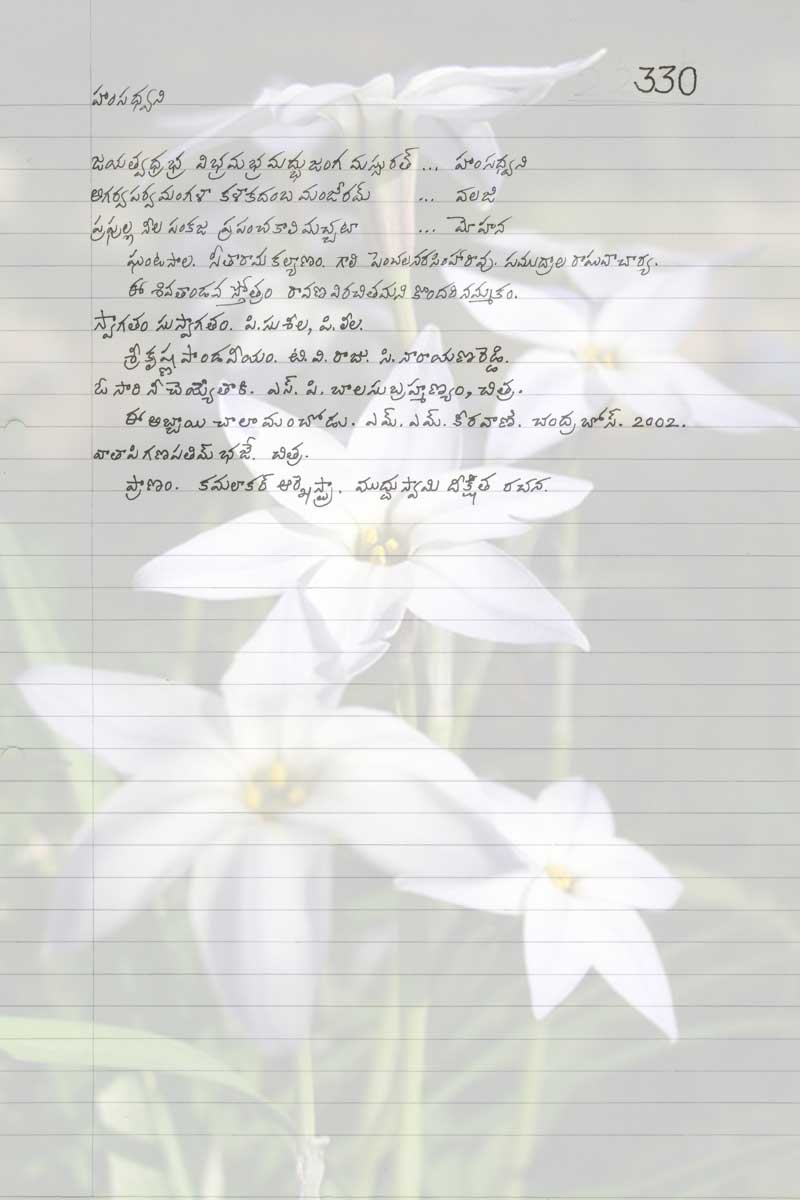 330
హంసధ్వని
జయత్వదభ్ర విభ్రమభ్రమద్భుజంగ మస్ఫురత్ ... హంసధ్వని
అగర్వసర్వమంగళా కళాకదంబ మంజరీమ్ ... వలజి
ప్రఫుల్ల నీల పంకజ ప్రపంచకాలిమచ్ఛటా ... మోహన
ఘంటసాల. సీతారామ కల్యాణం. గాలి పెంచలనరసింహారావు. సముద్రాల రాఘవాచార్య.
ఈ శివతాండవ స్తోత్రం రావణ విరచితమని కొందరి నమ్మకం.
స్వాగతం సుస్వాగతం. పి.సుశీల, పి.లీల.
శ్రీ కృష్ణ పాండవీయం. టి.వి.రాజు. సి.నారాయణరెడ్డి.
ఓ సారి నీ చెయ్యేతాకి. ఎస్. పి. బాలసుబ్రహ్మణ్యం, చిత్ర.
ఈ అబ్బాయి చాలా మంచోడు. ఎమ్. ఎమ్. కీరవాణి. చంద్ర బోస్. 2002.
వాతాపి గణపతిమ్ భజే. చిత్ర.
ప్రాణం. కమలాకర్ ఆర్కెస్ట్రా. ముద్దుస్వామి దీక్షిత రచన.